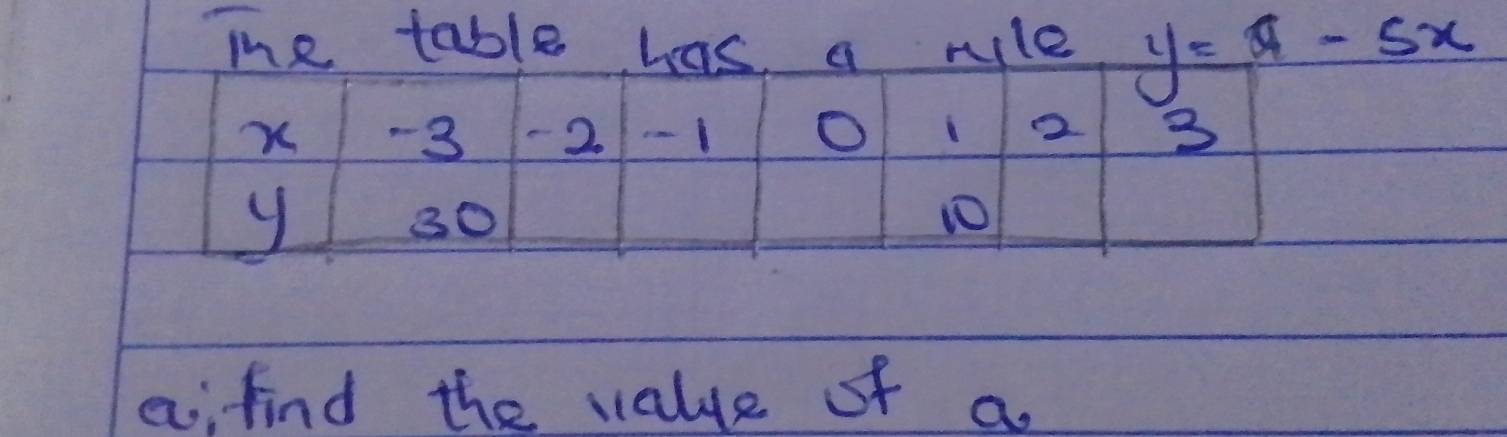 The table has a rule y = a - 5x
x -3 -2 -1 0 1 2 3
y 30 10
a; find the value of a